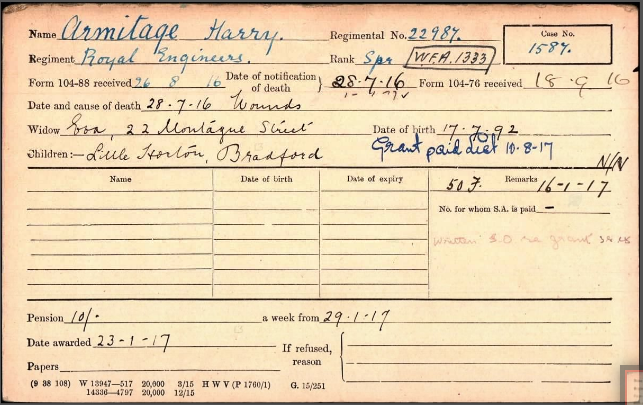 Name Armitage Harry. Regimental No. 22987. Case No. 1587.
Regiment Royal Engineers. Rank Spr W.F.A. 1333
Form 104-88 received 26 8 16 Date of notification of death } 28.7.16 Form 104-76 received 18.9 16
Date and cause of death 28.7.16 Wounds
Widow Eva, 22 Montague Street Date of birth 17.7.92
Children:— Little Horton, Bradford Grant paid 10.8.17
N/N
Name Date of birth Date of expiry 50 F. Remarks 16-1-17
No. for whom S.A. is paid —
S.O. re grant
Pension 10/- a week from 29.1.17
Date awarded 23-1-17 If refused, reason {
Papers
(9 38 108) W 13947—517 20,000 3/15 H W V (P 1760/1) G. 15/251
14336—4797 20,000 12/15